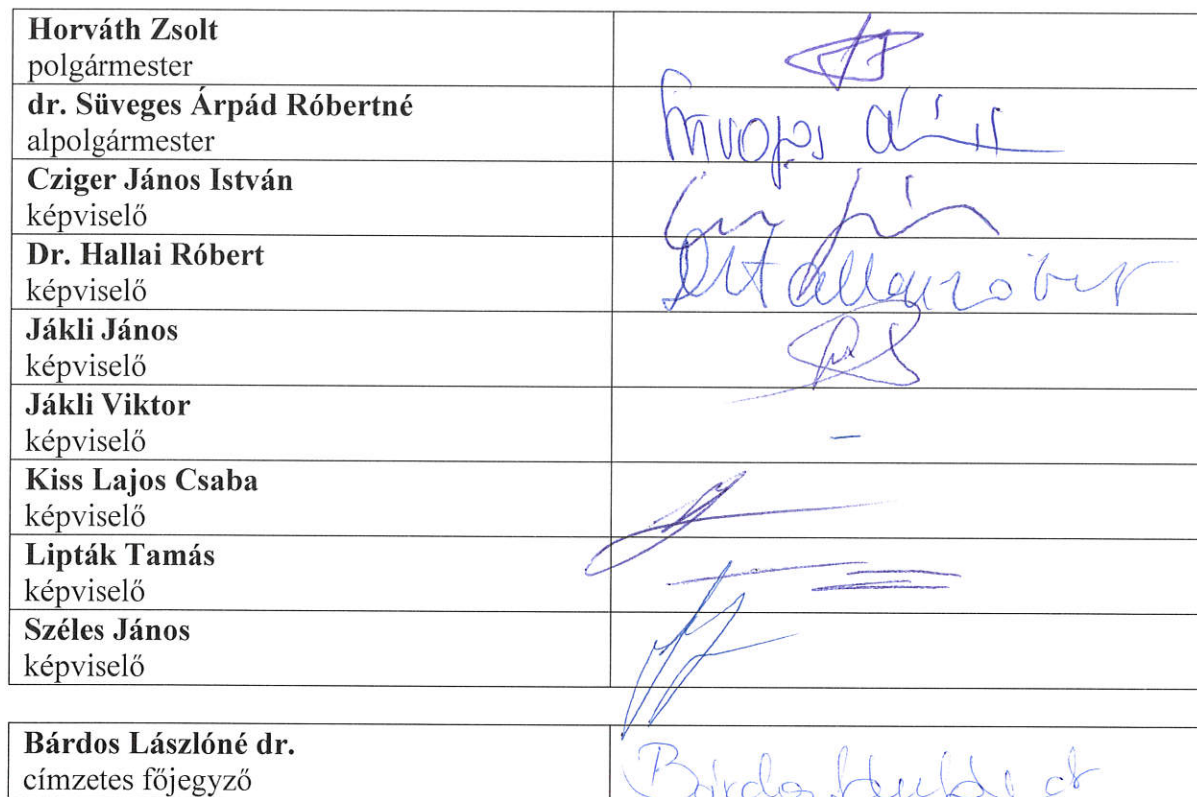 Horváth Zsolt
polgármester
dr. Süveges Árpád Róbertné
alpolgármester
Cziger János István
képviselő
Dr. Hallai Róbert
képviselő
Jákli János
képviselő
Jákli Viktor
képviselő
–
Kiss Lajos Csaba
képviselő
Lipták Tamás
képviselő
Széles János
képviselő
Bárdos Lászlóné dr.
címzetes főjegyző